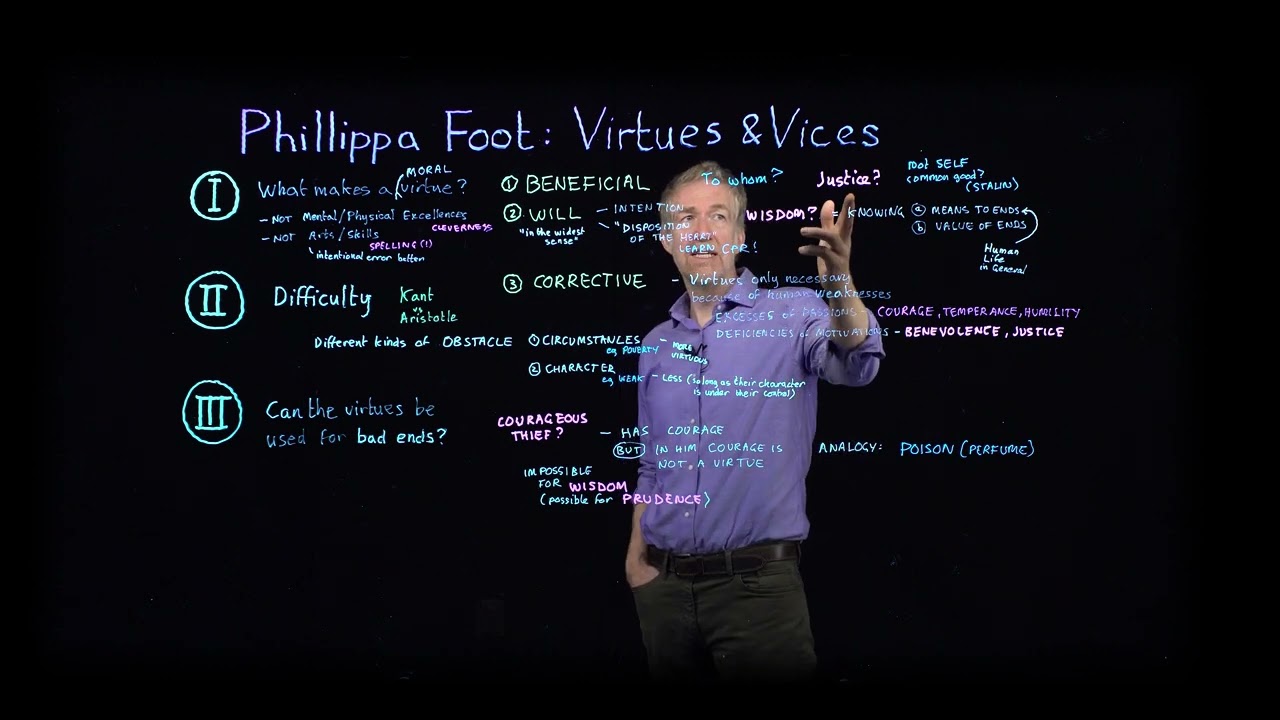 Phillippa Foot: Virtues & Vices
I
What makes a moral virtue?
- NOT Mental/Physical Excellences
CLEVERNESS
- NOT Arts/Skills
SPELLING (!)
intentional error better
① BENEFICIAL
To whom?
Justice?
not SELF
common good?
(STALIN)
② WILL
"in the widest
sense"
- INTENTION
- "DISPOSITION
OF THE HEART"
LEARN CPR!
WISDOM? = KNOWING
ⓐ MEANS TO ENDS
ⓑ VALUE OF ENDS
Human
Life
in General
③ CORRECTIVE
- Virtues only necessary
because of human weaknesses
EXCESSES OF PASSIONS - COURAGE, TEMPERANCE, HUMILITY
DEFICIENCIES OF MOTIVATIONS - BENEVOLENCE, JUSTICE
II
Difficulty
Kant
vs
Aristotle
Different kinds of OBSTACLE
① CIRCUMSTANCES
eg POVERTY
- MORE
VIRTUOUS
② CHARACTER
eg WEAK
- LESS (so long as their character
is under their control)
III
Can the virtues be
used for bad ends?
COURAGEOUS
THIEF?
- HAS COURAGE
BUT IN HIM COURAGE IS
NOT A VIRTUE
ANALOGY: POISON (PERFUME)
IMPOSSIBLE
FOR WISDOM
(possible for PRUDENCE)